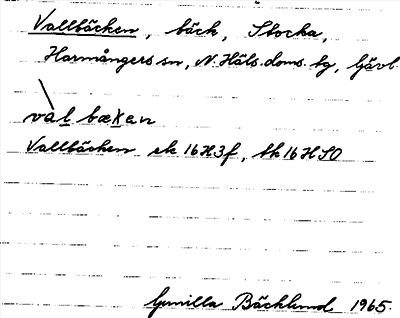 Vallbäcken, bäck, Stocka,
Harmångers sn, N. Häls. doms. tg, Gävl.
val bækan
Vallbäcken ek 16H3f, tk 16H SO
Gunilla Bäcklund 1965.